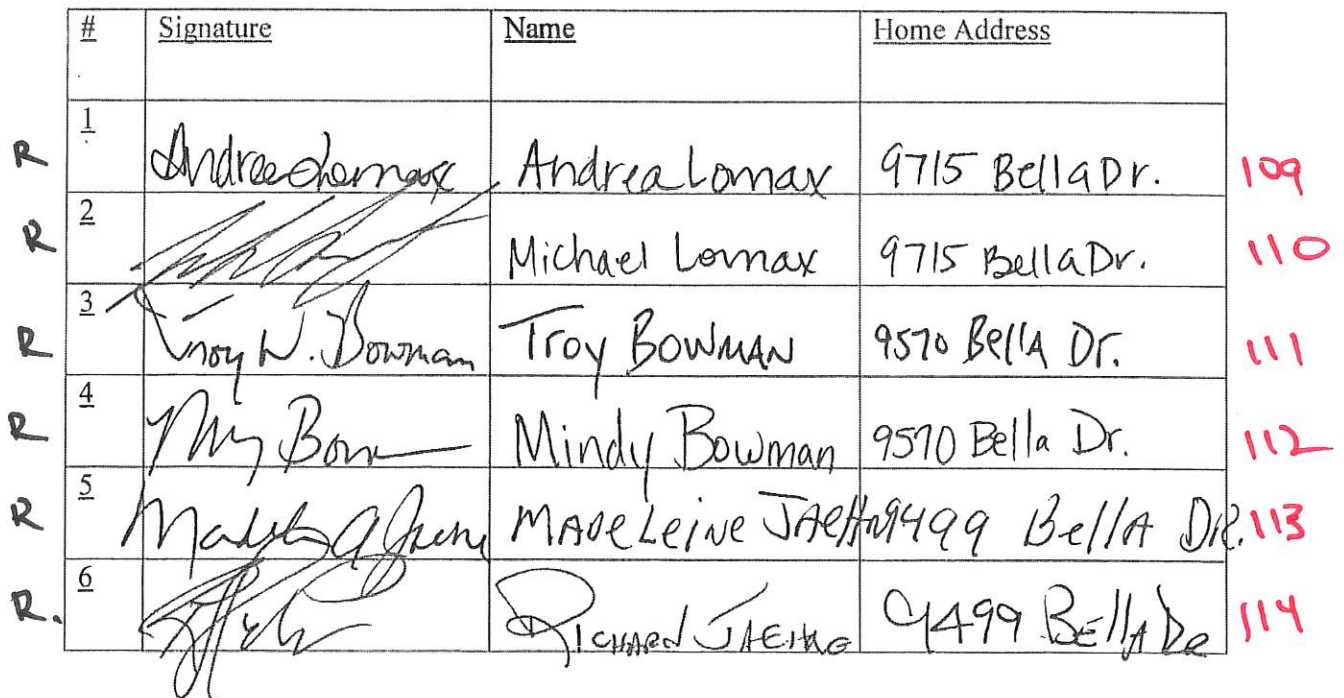 # Signature Name Home Address
R 1 Andrea Lomax Andrea Lomax 9715 Bella Dr. 109
R 2 Michael Lomax 9715 Bella Dr. 110
R 3 Troy W. Bowman Troy BOWMAN 9570 BellA Dr. 111
R 4 Mindy Bowman 9570 Bella Dr. 112
R 5 MADeLeiNe 9499 BellA DR. 113
R. 6 RICHARD 9499 BEllA DR 114